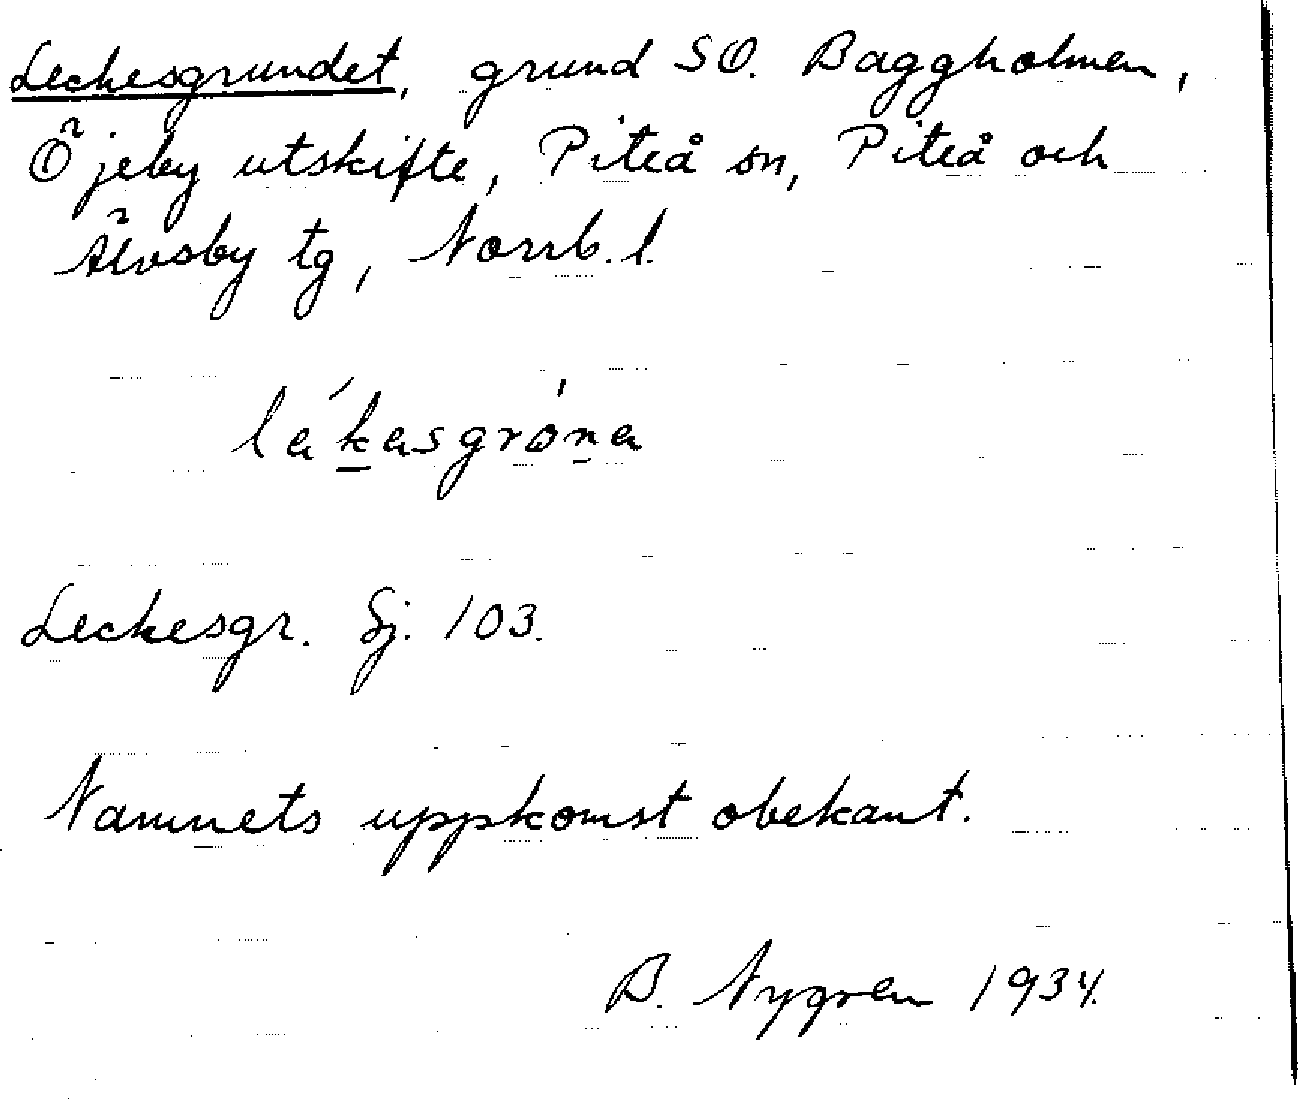 Leckesgrundet, grund SO. Baggholmen,
Öjeby utskifte, Piteå sn, Piteå och
Älvsby tg, Norrb. l.
lákasgróna
Leckesgr. Sj. 103.
Namnets uppkomst obekant.
B. Nygren 1934.